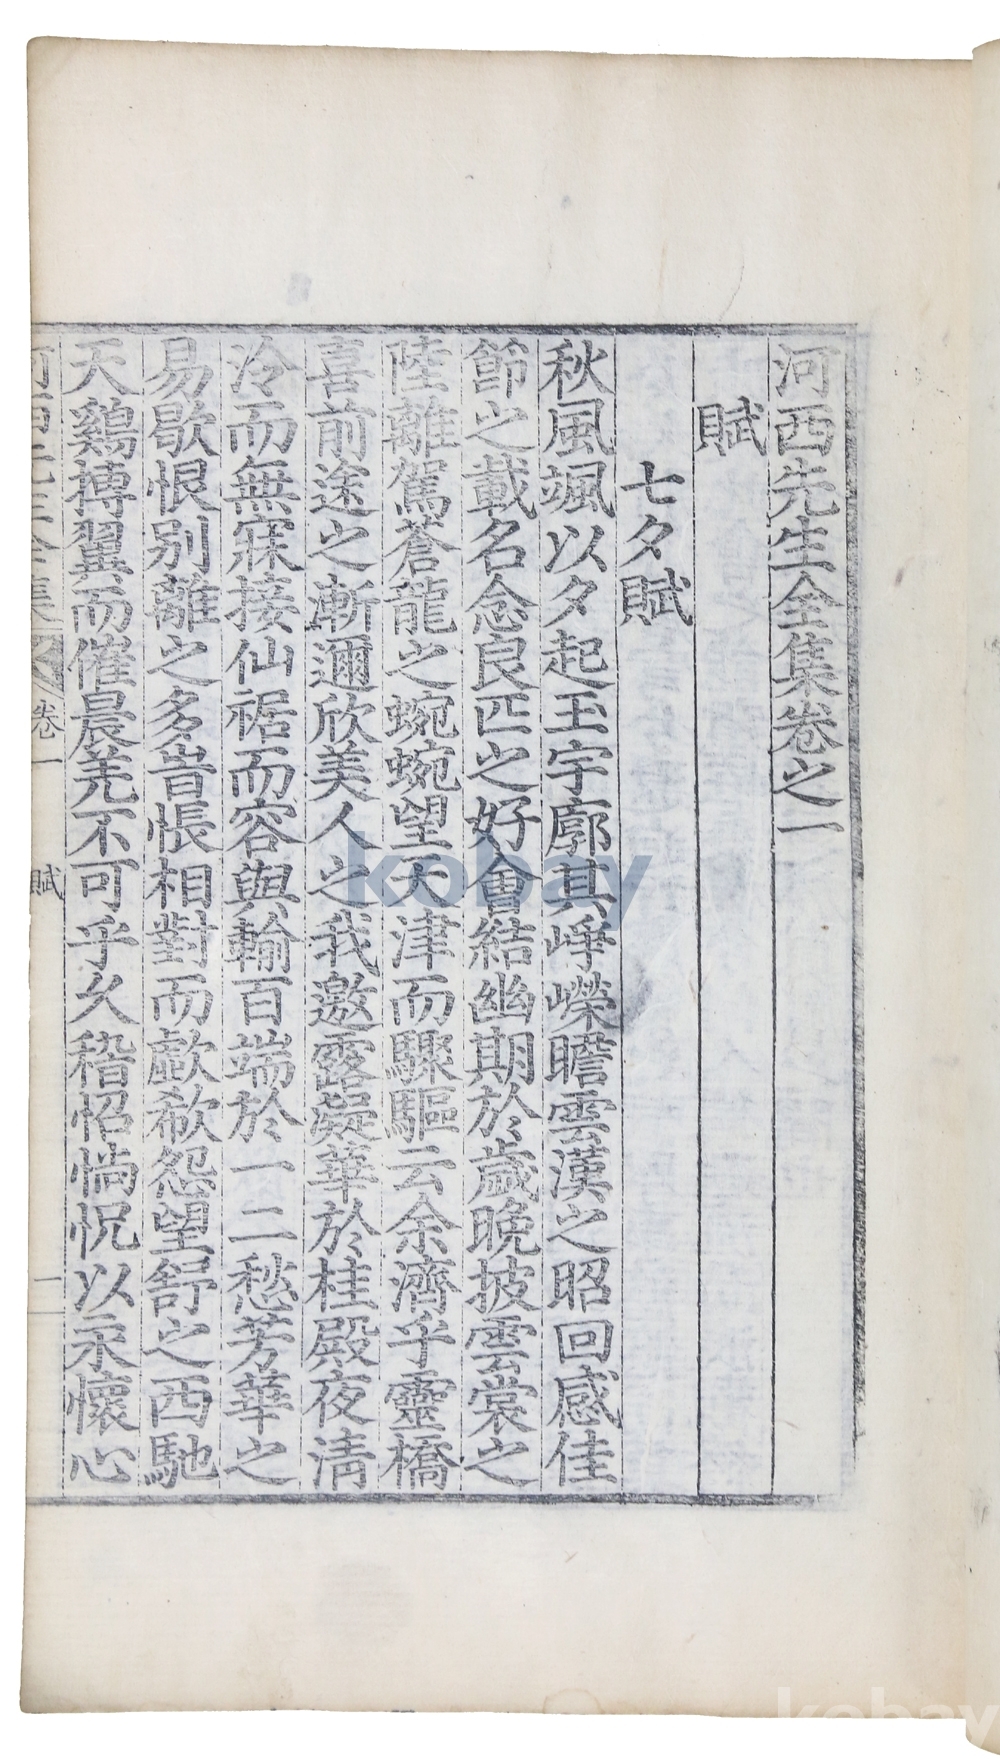 河西先生全集卷之一
賦
七夕賦
秋風颯以夕起玉宇廓其崢嶸瞻雲漢之昭回感佳
節之載名念良匹之好會結幽期於歲晚披雲裳之
陸離駕蒼龍之蜿蜿望天津而驟驅云余濟乎靈橋
喜前途之漸邇欣美人之我邀露凝華於桂殿夜清
泠而無寐接仙裾而容與輸百端於一二愁芳華之
易歇恨别離之多旹悵相對而歔欷怨望舒之西馳
天鷄搏翼而催晨羌不可乎久稽怊惝怳以永懷心
河西先生全集 卷一 賦 一
kobay
kobay